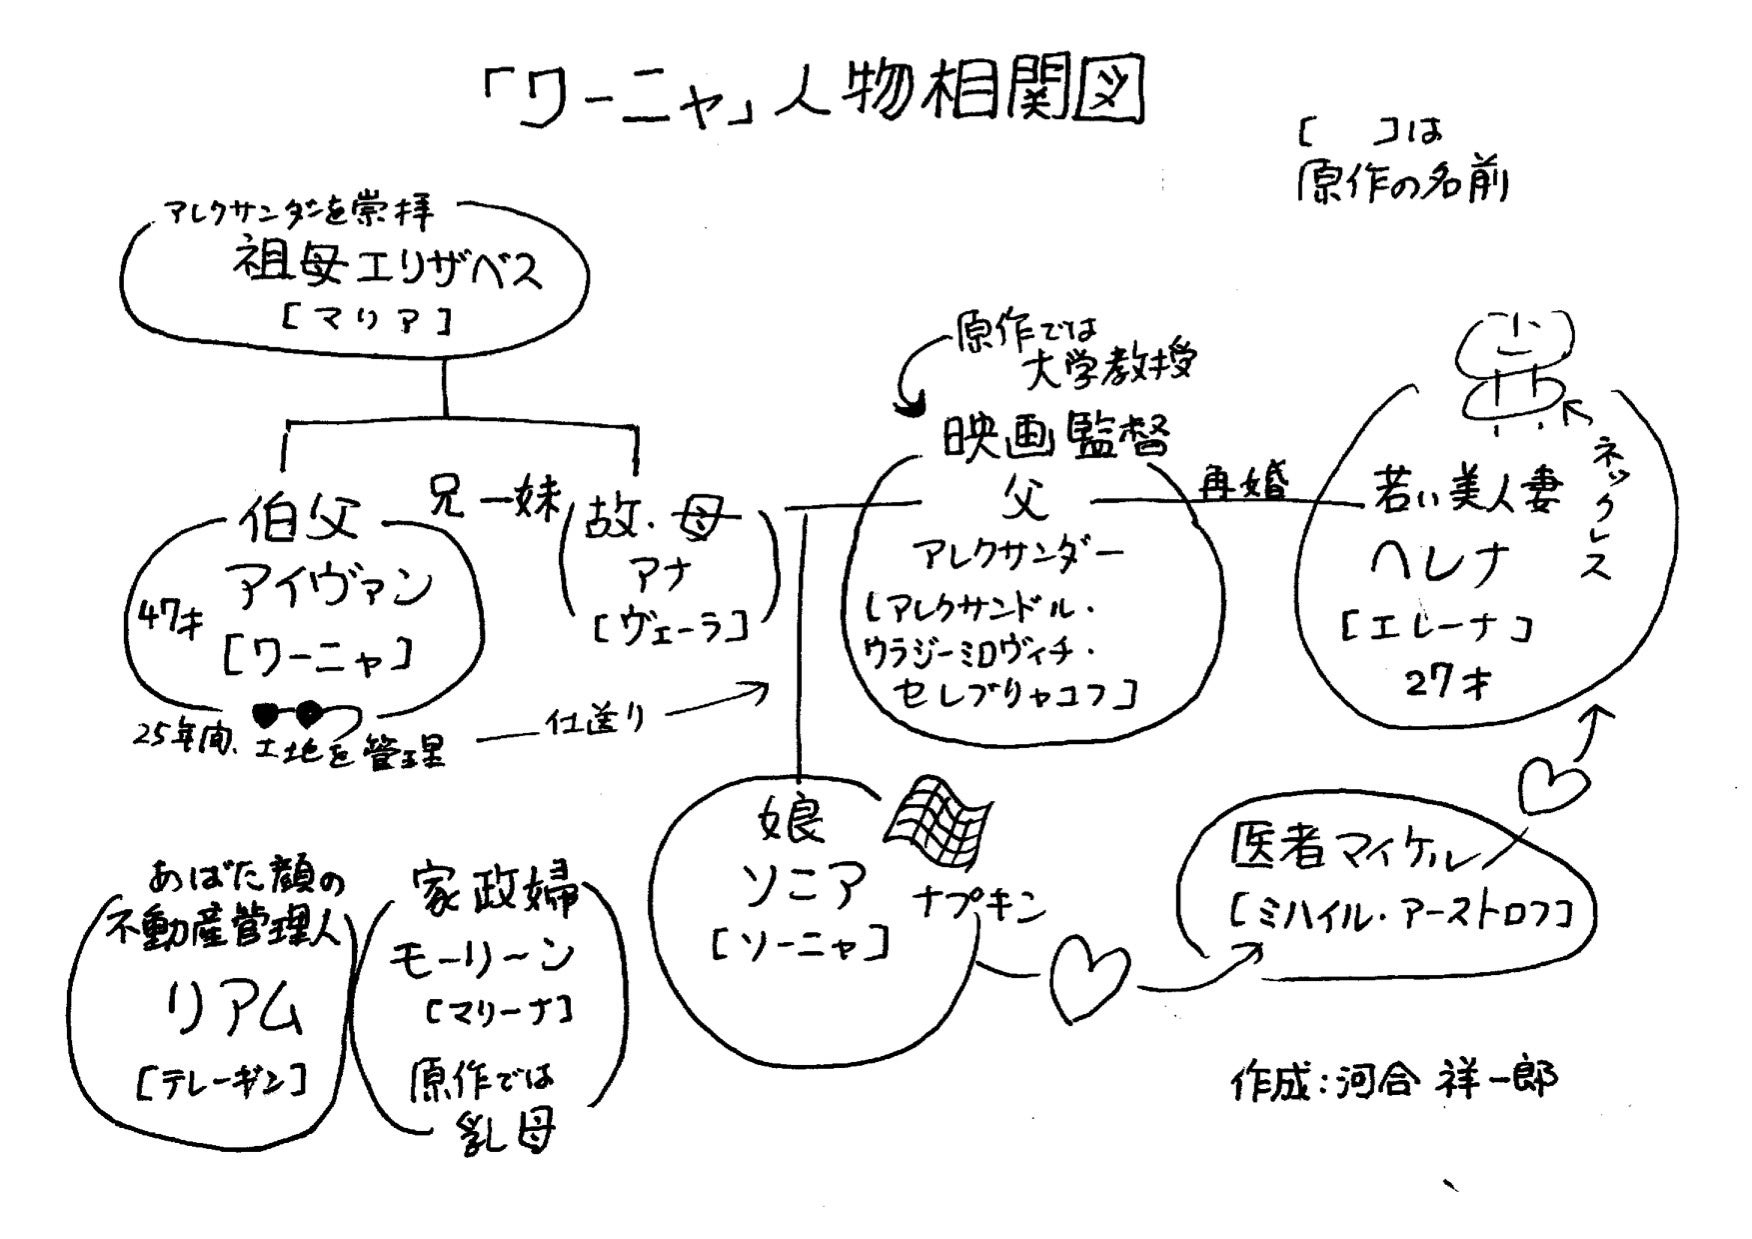 「ワーニャ」人物相関図
[　　]は
原作の名前
アレクサンダーを崇拝
祖母エリザベス
[マリア]
原作では
大学教授
映画監督
父
アレクサンダー
[アレクサンドル・
ウラジーミロヴィチ・
セレブリャコフ]
再婚
若い美人妻
ヘレナ
[エレーナ]
27才
ネックレス
伯父
アイヴァン
47才
[ワーニャ]
25年間、土地を管理
仕送り
兄ー妹
故・母
アナ
[ヴェーラ]
娘
ソニア
[ソーニャ]
ナプキン
医者マイケル
[ミハイル・アーストロフ]
あばた顔の
不動産管理人
リアム
[テレーギン]
家政婦
モーリーン
[マリーナ]
原作では
乳母
作成:河合 祥一郎